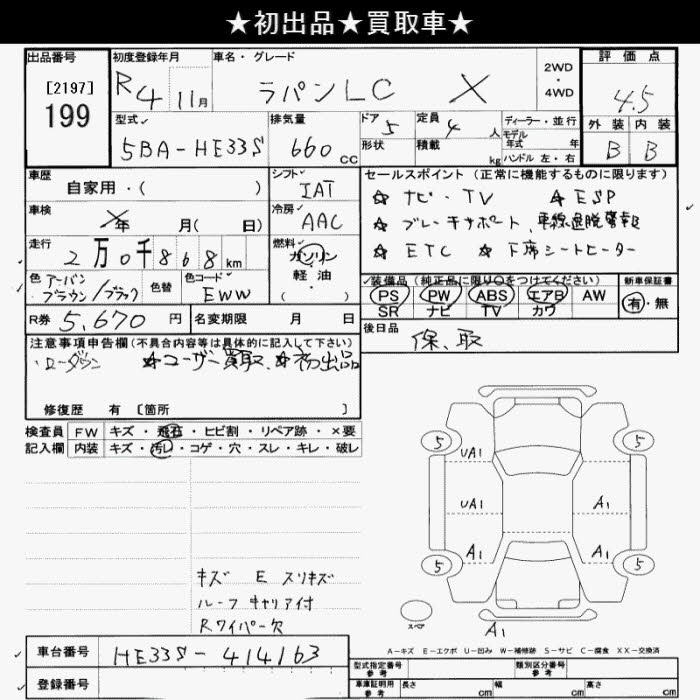 ★初出品★買取車★
出品番号 初度登録年月 車名・グレード 評価点
[2197] R4 11月 ラパンLC X 2WD・4WD 4.5
199
型式 排気量 ドア 定員 ディーラー・並行 外装 内装
5BA-HE33S 660 CC 5 4 人 モデル年式 年 B B
形状 積載 kg ハンドル 左・右
車歴 シフト セールスポイント (正常に機能するものに限ります)
自家用・( ) IAT ☆ ナビ・TV ☆ ESP
車検 冷房 ☆ ブレーキサポート、車線逸脱警報
年 月( 日) AAC ☆ ETC ☆ 下席シートヒーター
走行 燃料
2万0千868km ガソリン
軽油
・( )
色 色替 色コード 装備品 (純正品に限り○をつけてください) 新車保証書
アーバンブラウン/ブラック EWW PS PW ABS エアB AW 有・無
SR ナビ TV カワ
R券 5,670円 名変期限 月 日 後日品
保、取
注意事項申告欄(不具合内容等は具体的に記入して下さい)
・ローダウン ☆ユーザー買取 ☆初出品
修復歴 有 [箇所 ]
検査員 FW キズ・飛石・ヒビ割・リペア跡・×要
記入欄 内装 キズ・汚れ・コゲ・穴・スレ・キレ・破レ
5 5
UA1
UA1 A1
A1 A1
5 5
キズ E スリキズ
ルーフキャリア付
Rワイパー欠
スペア
A1
A-キズ E-エクボ U-凹み W-補修跡 S-サビ C-腐食 XX-交換済
車台番号 HE33S-414163
型式指定番号 参考 類別区分番号 参考
登録番号
車庫証明用 参考 長さ cm 幅 cm 高さ cm